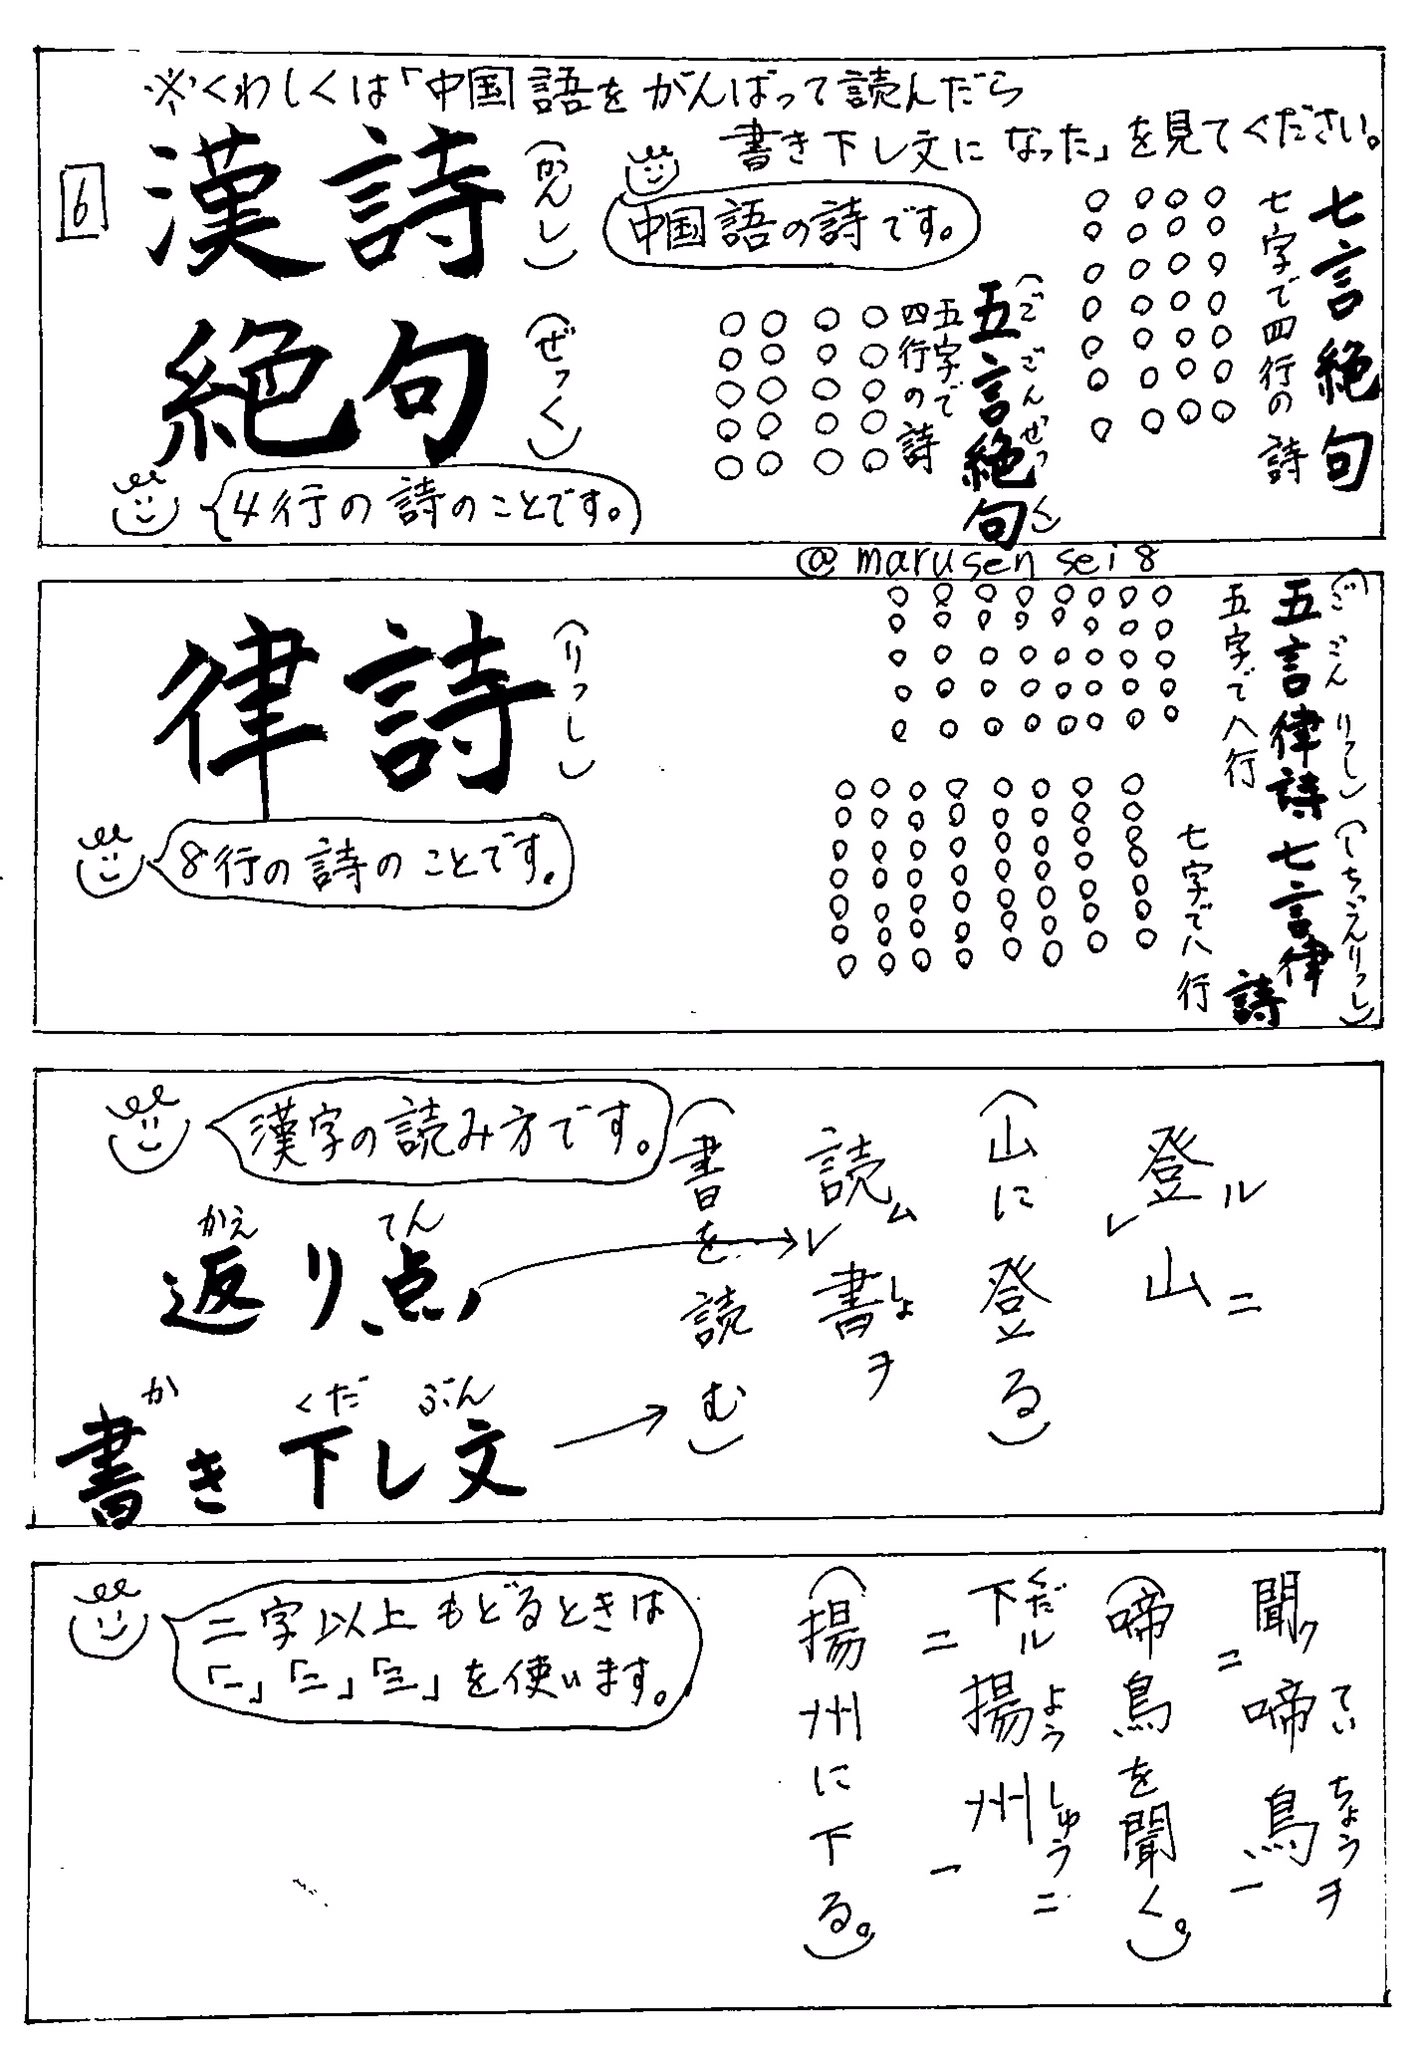 ※くわしくは「中国語をがんばって読んだら
書き下し文になった」を見てください。
6
漢詩(かんし)
中国語の詩です。
絶句(ぜっく)
4行の詩のことです。
七言絶句
七字で四行の詩
五言絶句(ごごんぜっく)
五字で
四行の詩
@marusensei8
律詩(りっし)
8行の詩のことです。
五言律詩(ごごんりっし)
五字で八行
七言律詩(しちごんりっし)
七字で八行
漢字の読み方です。
返り点
かえ てん
書き下し文
か くだ ぶん
登ルレ山ニ
(山に登る)
読ムレ書ヲ
しょ
(書を読む)
二字以上もどるときは
「一」「二」「三」を使います。
聞ク二啼鳥ヲ一
てい ちょう
(啼鳥を聞く。)
下ル二揚州ニ一
くだ よう しゅう
(揚州に下る。)